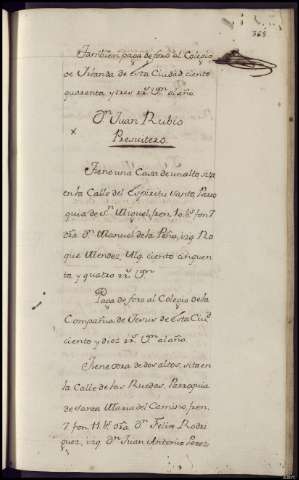 365
Tambien paga de foro al Colegio
de Irlanda de esta Ciudad, ciento
quarenta y tres rs. vn. al año
Dn. Juan Rubio
Presvitero
Tiene una Casa de un alto sita
en la Calle del Espiritu Santo Parro
quia de Sn. Miguel, fren. 10 bs. fon. 7
dra. Dn. Manuel de la Peña, izq. Ro
que Mendez, Alq. ciento cinquen
ta y quatro rs. vn.
Paga de foro al Colegio de la
Compañia de Jesus de esta Ciud.
ciento y diez rs. vn. al año
Tiene otra de dos altos, sita en
la Calle de las Ruedas, Parroquia
de Santa Maria del Camino, fren.
7 fon. 11 bs. dra. Dn. Felix Rodri
guez, izq. Dn. Juan Antonio Perez